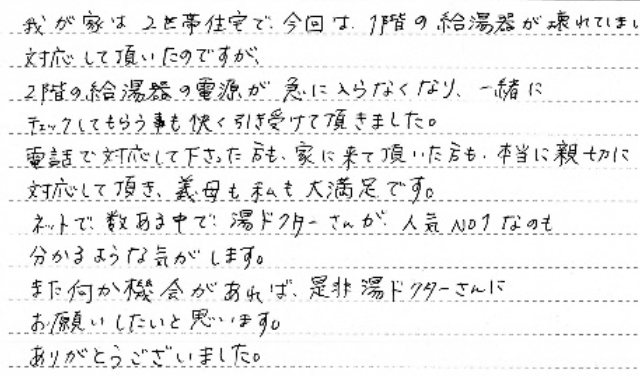 我が家は2世帯住宅で、今回は、1階の給湯器が壊れてしまい
対応して頂いたのですが、
2階の給湯器の電源が急に入らなくなり、一緒に
チェックしてもらう事も快く引き受けて頂きました。
電話で対応して下さった方も、家に来て頂いた方も、本当に親切に
対応して頂き、義母も私も大満足です。
ネットで、数ある中で、湯ドクターさんが、人気NO1なのも
分かるような気がします。
また何か機会があれば、是非湯ドクターさんに
お願いしたいと思います。
ありがとうございました。